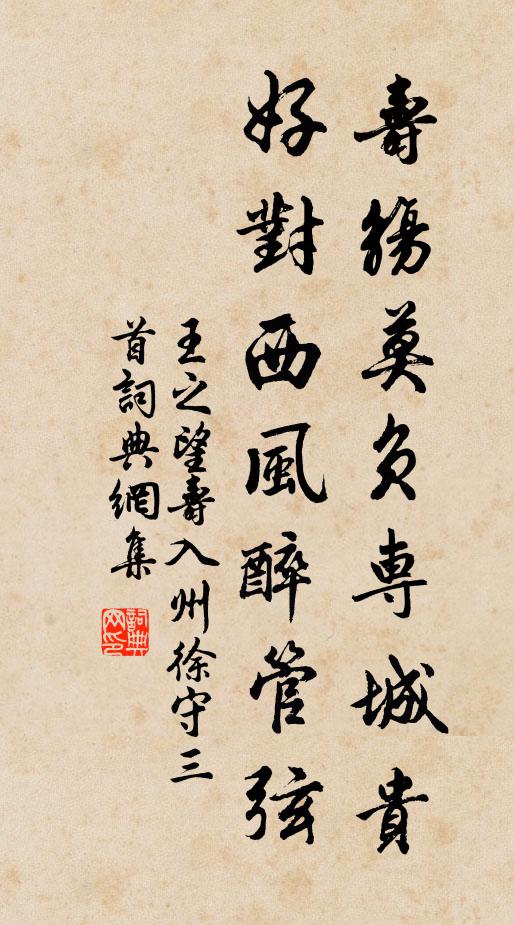 壽觴莫負専城貴
好對西風醉管弦
王之望壽入州徐守三
首詞典網集
詞典網印